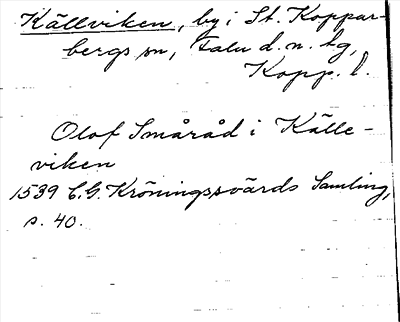 Källviken, by i St. Koppar-
bergs sn, Falu d.n. tg,
Kopp. l.
Olof Småråd i Källe-
viken
1539 C.G. Kröningssvärds Samling,
s. 40.